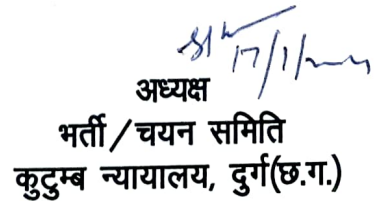 17/1/2024
अध्यक्ष
भर्ती/चयन समिति
कुटुम्ब न्यायालय, दुर्ग(छ.ग.)